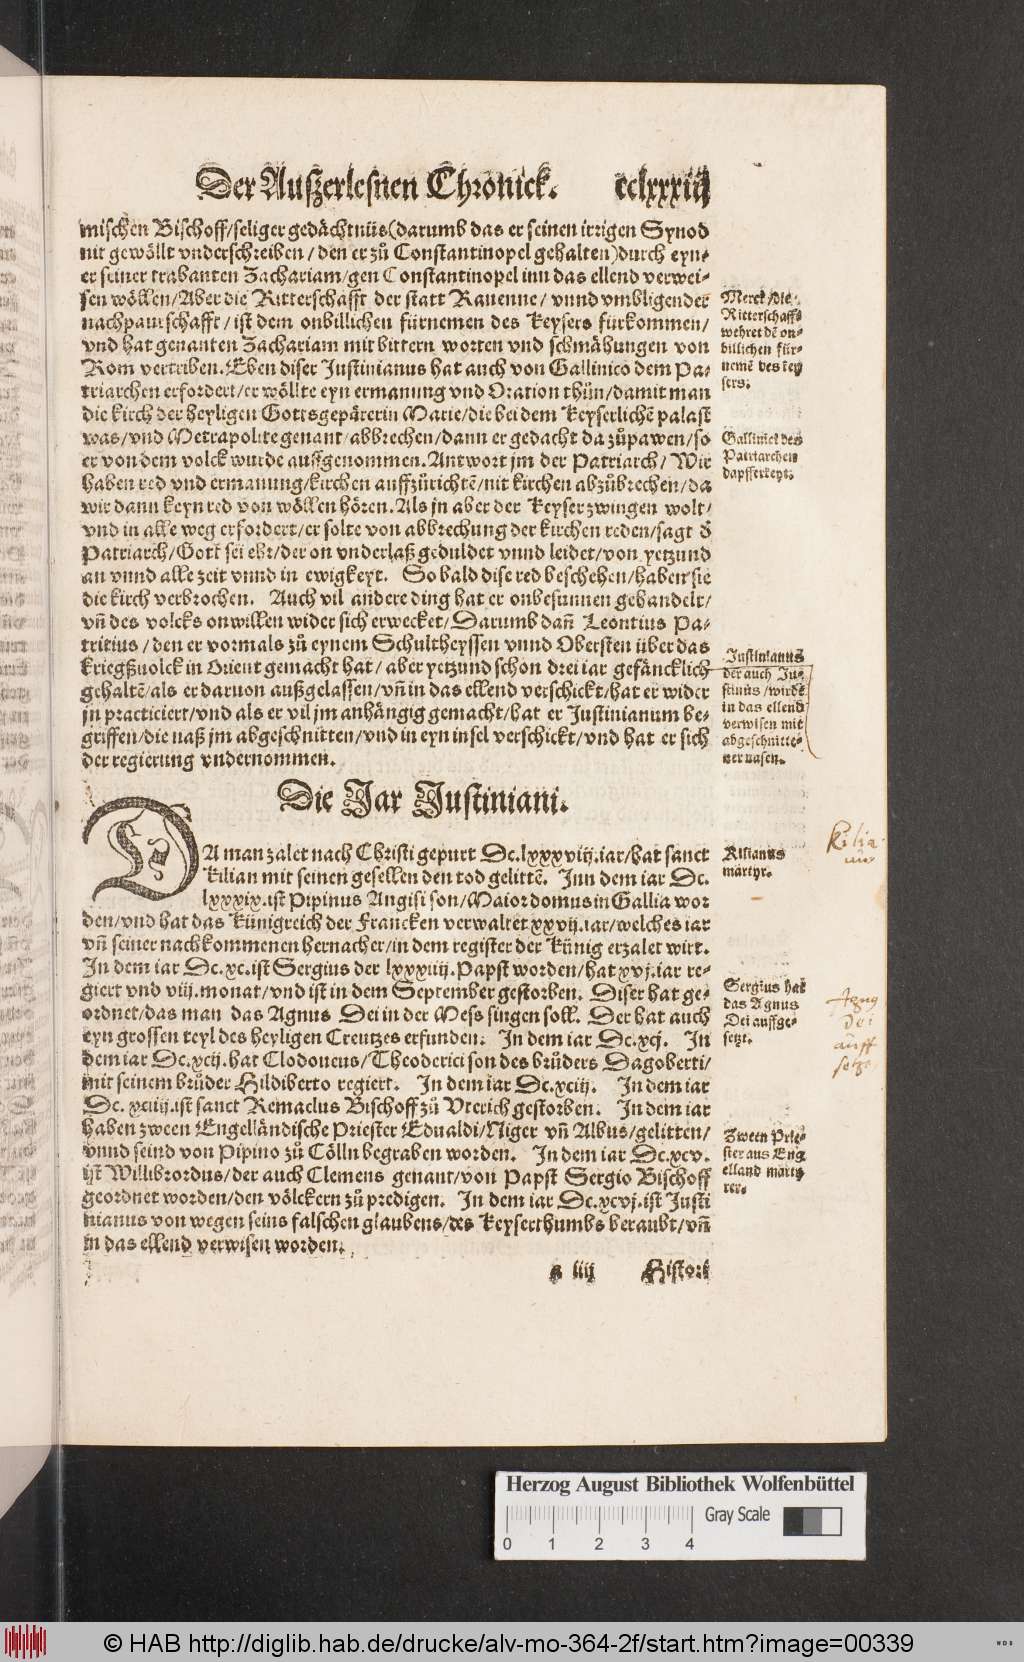 Der Auszerlesnen Chronick. cclxxxiiij
mischen Bischoff/seliger gedächtnüs(darumb das er seinen irrigen Synod
nit gewöllt vnderschreiben/den er zů Constantinopel gehalten)durch eyn-
er seiner trabanten Zachariam/gen Constantinopel inn das ellend verwei-
sen wöllen/Aber die Ritterschafft der statt Rauenne/vnnd vmbligender
nachpaurschafft/ist dem onbillichen fürnemen des Keysers fürkommen/
vnd hat genanten Zachariam mit bittern worten vnd schmähungen von
Rom vertriben. Eben diser Justinianus hat auch von Gallinico dem Pa-
triarchen erfordert/er wöllte eyn ermanung vnd Oration thůn/damit man
die kirch der heyligen Gottsgepärerin Marie/die bei dem Keyserlichē palast
was/vnd Metrapolite genant/abbrechen/dann er gedacht da zůpawen/so
er von dem volck wurde auffgenommen. Antwort jm der Patriarch/Wir
haben red vnd ermanung/kirchen auffzůrichtē/nit kirchen abzůbrechen/da
wir dann keyn red von wöllen hören. Als jn aber der Keyser zwingen wolt/
vnd in alle weg erfordert/er solte von abbrechung der kirchen reden/sagt d̄
Patriarch/Gott sei ehr/der on vnderlaß geduldet vnnd leidet/von yetzund
an vnnd alle zeit vnnd in ewigkeyt. So bald dise red beschehen/haben sie
die kirch verbrochen. Auch vil andere ding hat er onbesunnen gehandelt/
vñ des volcks onwillen wider sich erwecket/Darumb dañ Leontius Pa-
tritius/den er vormals zů eynem Schultheyssen vnnd Obersten über das
kriegßuolck in Orient gemacht hat/aber yetzund schon drei iar gefäncklich
gehaltē/als er daruon außgelassen/vñ in das ellend verschickt/hat er wider
jn practiciert/vnd als er vil jm anhängig gemacht/hat er Justinianum be-
griffen/die naß jm abgeschnitten/vnd in eyn insel verschickt/vnd hat er sich
der regierung vndernommen.
Merck/die
Ritterschafft
wehret dē on-
billichen für-
nemē des key
sers.
Gallinici des
Patriarchen
dapfferkeyt.
Justinianus
der auch Ju-
stinus/wirdt
in das ellend
verwisen mit
abgeschnitte-
ner nasen.
Die Jar Justiniani.
DA man zalet nach Christi gepurt Dc.lxxxviij.iar/hat sanct
Kilian mit seinen gesellen den tod gelittē. Inn dem iar Dc.
lxxxix.ist Pipinus Angisi son/Maior domus in Gallia wor
den/vnd hat das Künigreich der Francken verwaltet xxvij.iar/welches iar
vñ seiner nachkommenen hernacher/in dem register der Künig erzalet wirt.
In dem iar Dc.xc.ist Sergius der lxxxiiij.Papst worden/hat xvj.iar re-
giert vnd viij.monat/vnd ist in dem September gestorben. Diser hat ge-
ordnet/das man das Agnus Dei in der Mess singen soll. Der hat auch
eyn grossen teyl des heyligen Creutzes erfunden. In dem iar Dc.xcj. In
dem iar Dc.xcij.hat Clodoueus/Theoderici son des brůders Dagoberti/
mit seinem brůder Hildiberto regiert. In dem iar Dc.xciij. In dem iar
Dc.xciiij.ist sanct Remaclus Bischoff zů Vtrich gestorben. In dem iar
haben zween Engelländische Priester Edualdi/Niger vñ Albus/gelitten/
vnnd seind von Pipino zů Cölln begraben worden. In dem iar Dc.xcv.
ist Willibrordus/der auch Clemens genant/von Papst Sergio Bischoff
geordnet worden/den völckern zů predigen. In dem iar Dc.xcvj.ist Justi
nianus von wegen seins falschen glaubens/des Keyserthumbs beraubt/vñ
in das ellend verwisen worden.
Kilianus
märtyr.
Sergius hat
das Agnus
Dei auffge-
setzt.
Zween Prie-
ster aus Eng
elland märty
rer.
Kilia
nus
Agnq
Dei
auff
setze
z iiij Histori
Herzog August Bibliothek Wolfenbüttel
Gray Scale
0 1 2 3 4
© HAB http://diglib.hab.de/drucke/alv-mo-364-2f/start.htm?image=00339